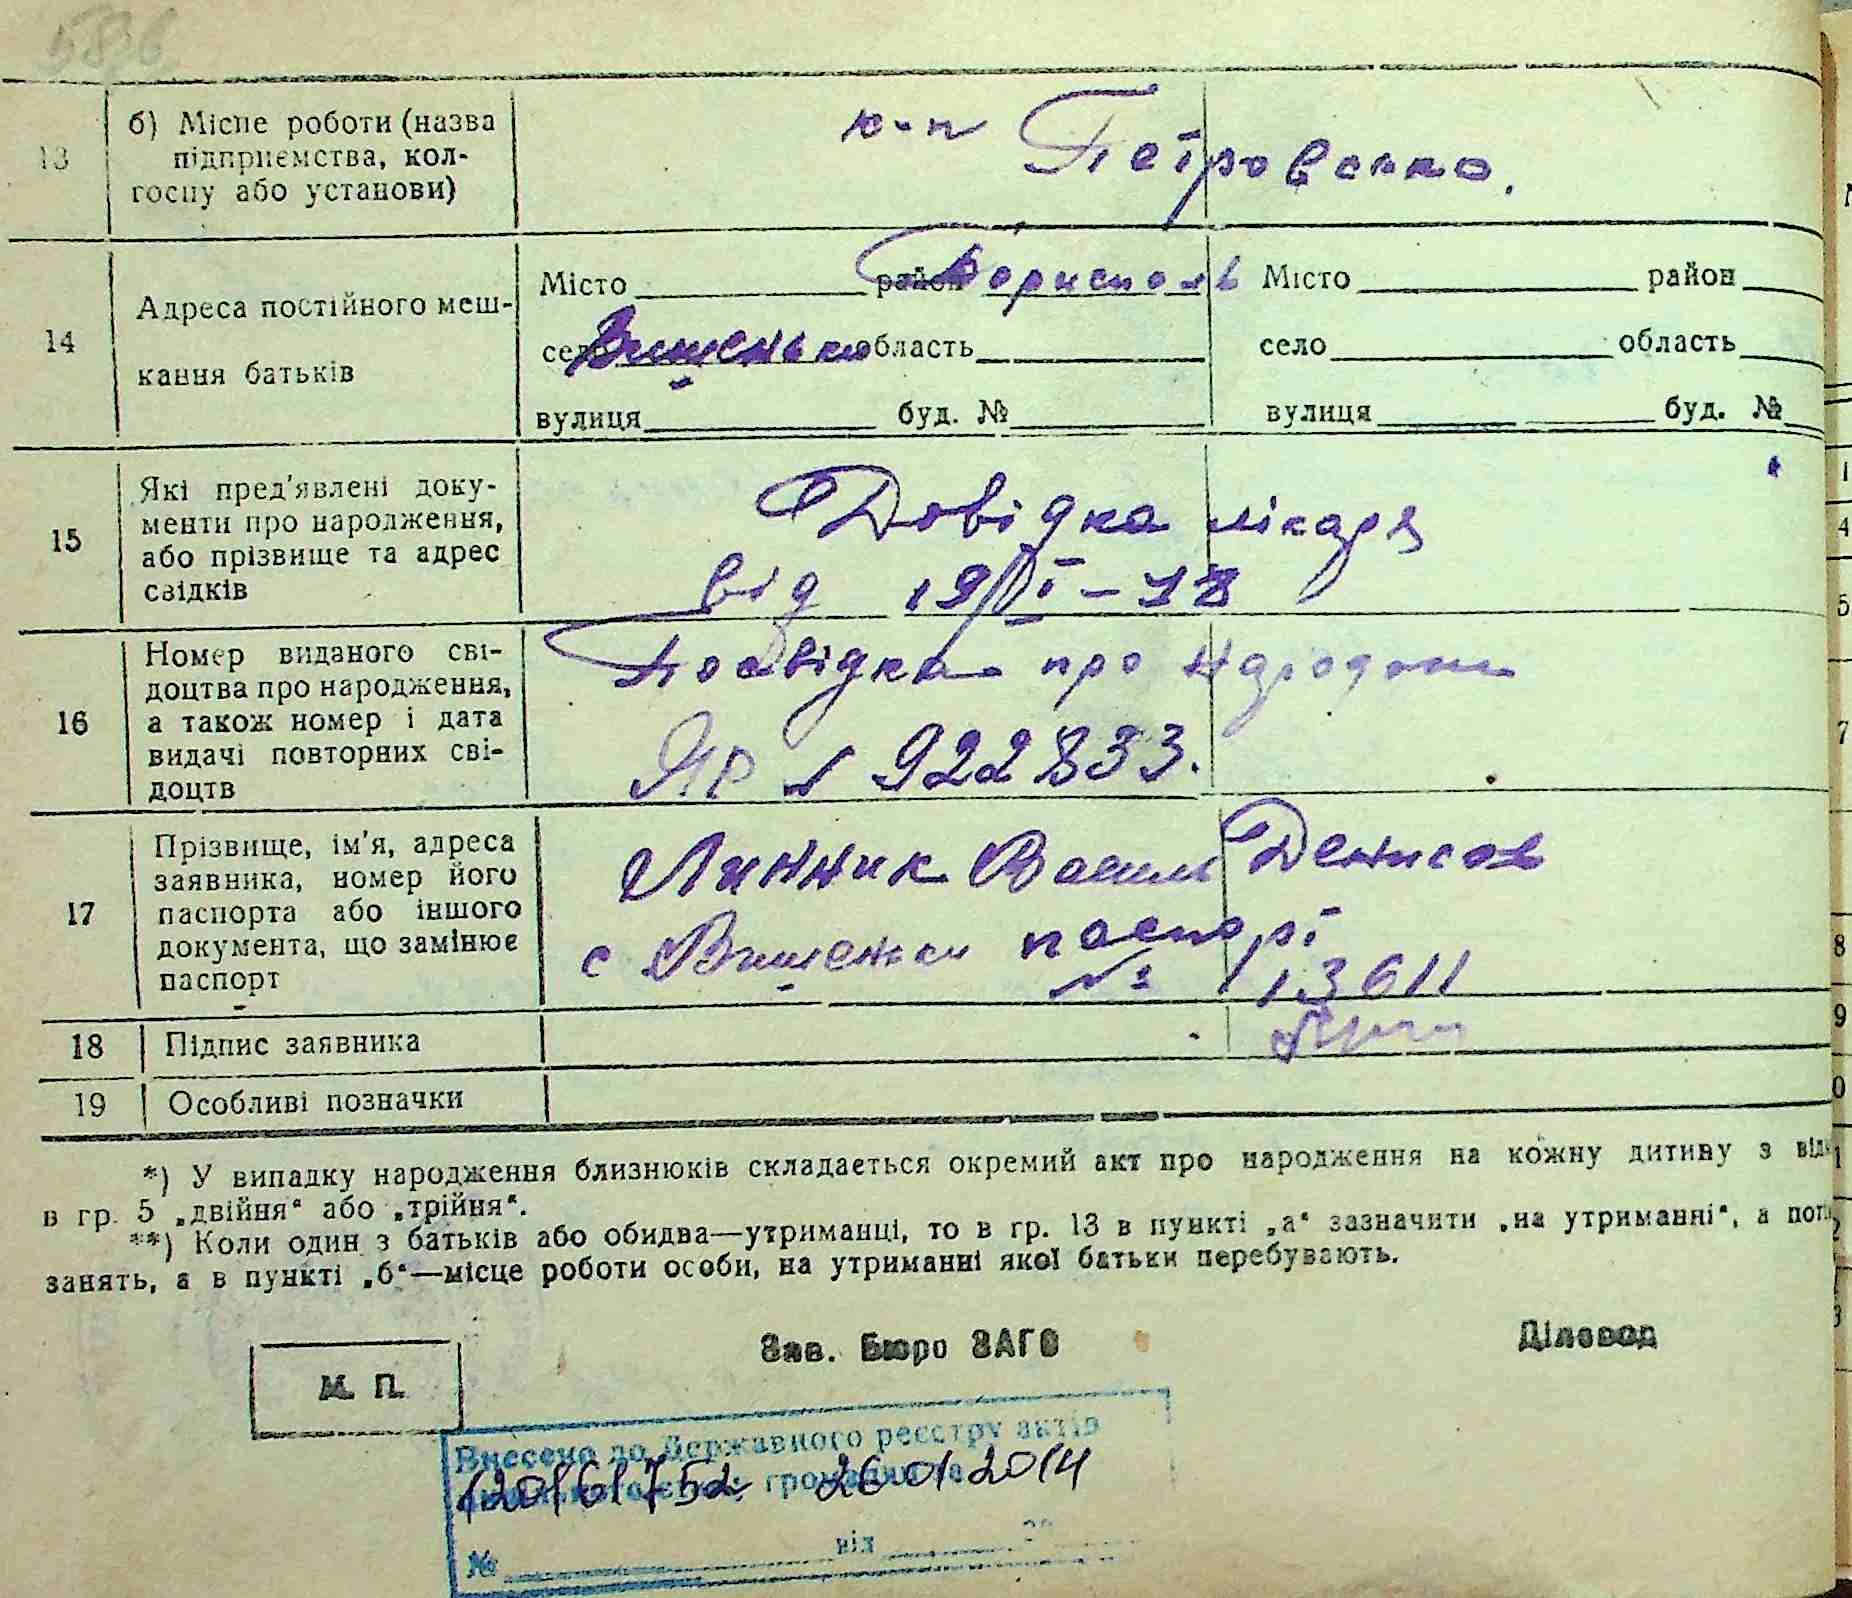 13 б) Місце роботи (назва підприємства, колгоспу або установи) к-п Петровсько.
14 Адреса постійного мешкання батьків
Місто район Бориспол Місто район
село Вишеньки область село область
вулиця буд. № вулиця буд. №
15 Які пред'явлені документи про народження, або прізвище та адрес свідків
Довідка лікаря
від
16 Номер виданого свідоцтва про народження, а також номер і дата видачі повторних свідоцтв
Посвідка про
ЯР № 922833.
17 Прізвище, ім'я, адреса заявника, номер його паспорта або іншого документа, що замінює паспорт
Линник Василь Денисов
с Вишеньки паспорт
№ 13611
18 Підпис заявника
19 Особливі позначки
*) У випадку народження близнюків складається окремий акт про народження на кожну дитину з від
в гр. 5 „двійня“ або „трійня“.
**) Коли один з батьків або обидва—утриманці, то в гр. 13 в пункті „а“ зазначити „на утриманні“, а
занять, а в пункті „б“—місце роботи особи, на утриманні якої батьки перебувають.
Зав. Бюро ЗАГС Діловод
М. П.
Внесено до Державного реєстру актів
громадян за
120161752 26 01 2014
№ від